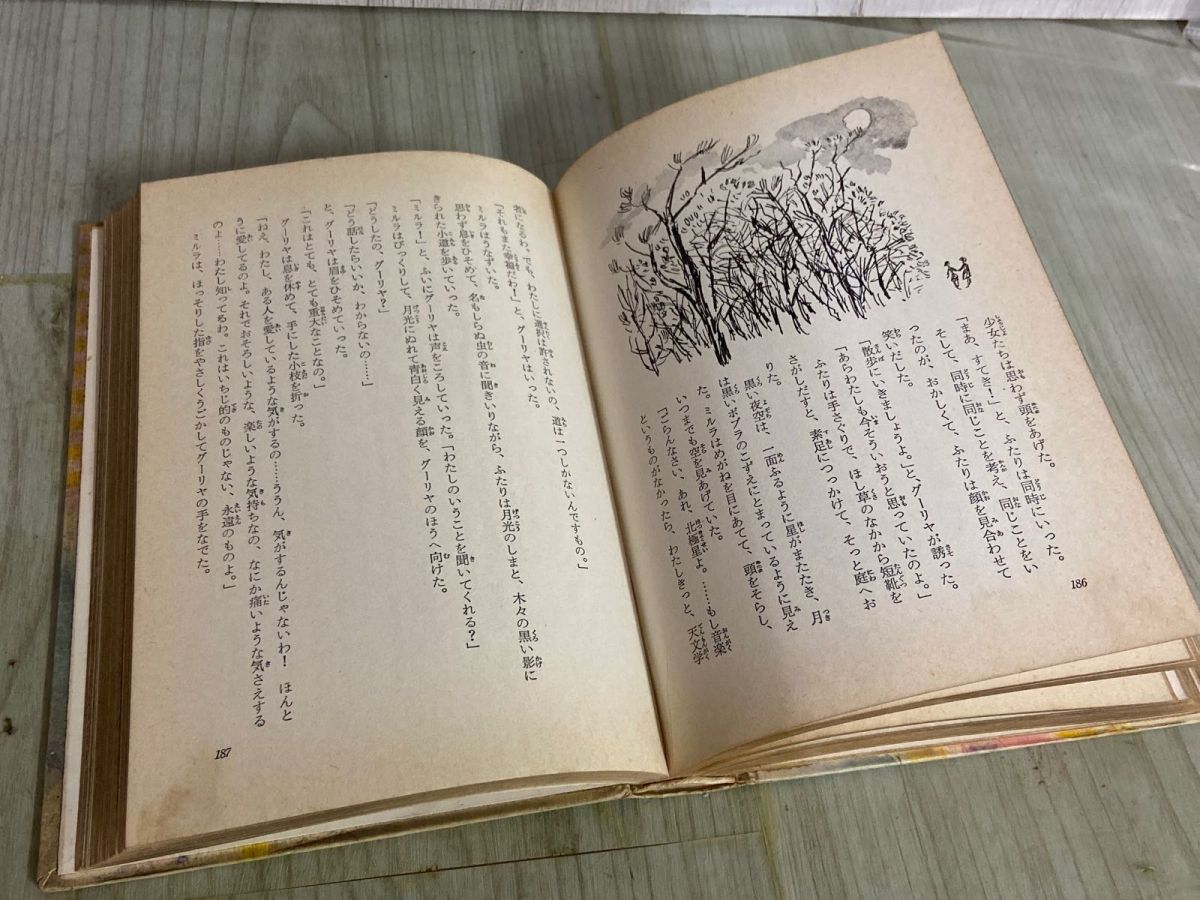 少女たちは思わず頭をあげた。
「まあ、すてき!」と、ふたりは同時にいった。
そして、同時に同じことを考え、同じことをい
ったのが、おかしくて、ふたりは顔を見合わせて
笑いだした。
「散歩にいきましょうよ。」と、グーリャが誘った。
「あらわたしも今そういおうと思っていたのよ。」
ふたりは手さぐりで、ほし草のなかから短靴を
さがしだすと、素足につっかけて、そっと庭へお
りた。
黒い夜空は、一面ふるように星がまたたき、月
は黒いポプラのこずえにとまっているように見え
た。ミルラはめがねを目にあてて、頭をそらし、
いつまでも空を見あげていた。
「ごらんなさい、あれ、北極星よ。……もし音楽
というものがなかったら、わたしきっと、天文学
186
者になるわ。でも、わたしに選択は許されないの、道は一つしかないんですもの。」
「それもまた幸福だわ!」と、グーリャはいった。
ミルラはうなずいた。
思わず息をひそめて、名もしらぬ虫の音に聞きいりながら、ふたりは月光のしまと、木々の黒い影に
きられた小道を歩いていった。
「ミルラ!」と、ふいにグーリャは声をころしていった。「わたしのいうことを聞いてくれる?」
ミルラはびっくりして、月光にぬれて青白く見える顔を、グーリャのほうへ向けた。
「どうしたの、グーリャ?」
「どう話したらいいか、わからないの……」
と、グーリャは眉をひそめていった。
「これはとても、とても重大なことなの。」
グーリャは息を休めて、手にした小枝を折った。
「ねえ、わたし、ある人を愛しているような気がするの……ううん、気がするんじゃないわ! ほんと
うに愛してるのよ。それでおそろしいような、楽しいような気持ちなの、なにか痛いような気さえする
のよ……わたし知ってるわ。これはいちじ的のものじゃない、永遠のものよ。」
ミルラは、ほっそりした指をやさしくうごかしてグーリャの手をなでた。
187